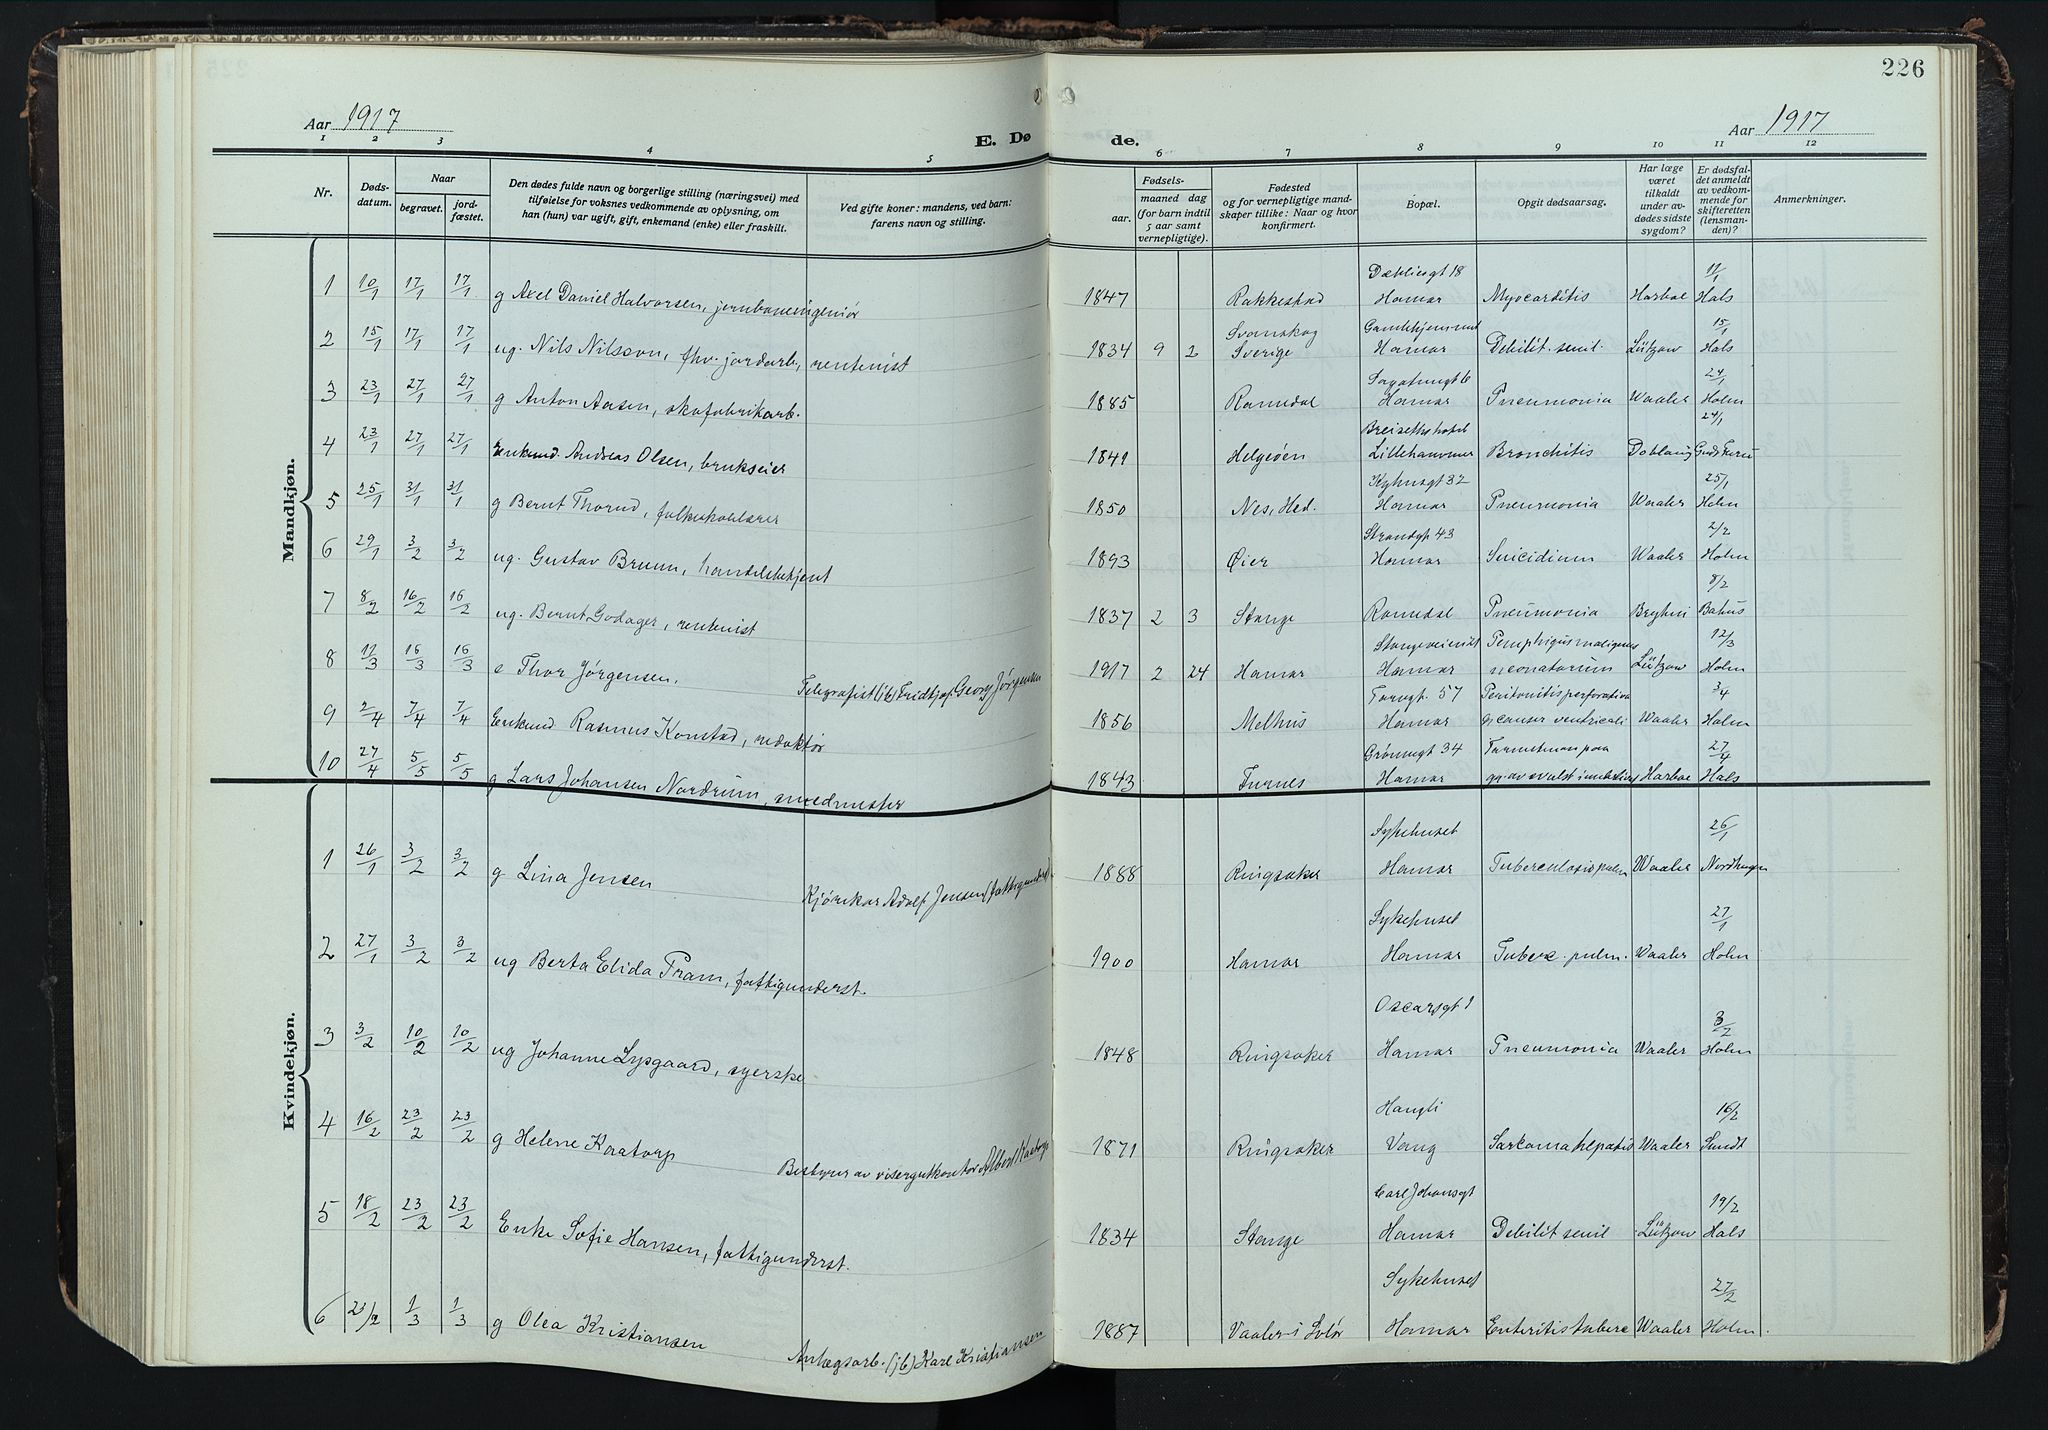 226
Aar 1917
E. Dø de.
Aar 1917
1 2 3 4 5 6 7 8 9 10 11 12
Nr.
Døds-
datum.
Naar
begravet.
jord-
fæstet.
Den dødes fulde navn og borgerlige stilling (næringsvei) med
tilføielse for voksnes vedkommende av oplysning, om
han (hun) var ugift, gift, enkemand (enke) eller fraskilt.
Ved gifte koner: mandens, ved barn:
farens navn og stilling.
Fødsels-
aar. maaned dag
(for barn indtil
5 aar samt
vernepligtige).
Fødested
og for vernepligtige mand-
skaper tillike: Naar og hvor
konfirmert.
Bopæl.
Opgit dødsaarsag.
Har læge
været
tilkaldt
under av-
dødes sidste
sygdom?
Er dødsfal-
det anmeldt
av vedkom-
mende for
skifteretten
(lensman-
den)?
Anmerkninger.
Mandkjøn.
Dæhliesgt 18 11/1
1 10/1 17/1 17/1 g Axel Daniel Halvorsen, jernbaneingeniør 1847 Rakkestad Hamar Myocarditis Harboe Hals
Svanskog Gamlehjemmet 15/1
2 15/1 17/1 17/1 ug. Nils Nilsson, fhv. jordarb., rentenist 1834 9 2 Sverige Hamar Debilit. senil. Lützow Hals
24/1
3 23/1 27/1 27/1 g Anton Aasen, skofabrikarb. 1885 Romedal Hamar Pneumonia Waaler Holm
Breisethshotel 24/1
4 23/1 27/1 27/1 Enkemd. Andreas Olsen, brukseier 1849 Helgøen Lillehammer Bronchitis
25/1
5 25/1 31/1 31/1 g Bernt Thorud, folkeskolelærer 1850 Nes, Hed. Hamar Pneumonia Waaler Holm
Strandgt. 43 2/2
6 29/1 3/2 3/2 ug. Gustav Bruun, handelsbetjent 1893 Øier Hamar Suicidium Waaler Holm
8/2
7 8/2 16/2 16/2 ug. Bernt Godager, rentenist 1837 2 3 Stange Romedal Pneumonia Bryhni Bakus
Pemphigus malignus 12/3
8 11/3 16/3 16/3 e Thor Jørgensen. Telegrafist (jb) Fridtjof Georg Jørgensen 1917 2 24 Hamar Hamar neonatorum Lützow Holm
Torvgt. 57 Peritonitis perforativa 3/4
9 2/4 7/4 7/4 Enkemd Rasmus Konstad, redaktør 1856 Melhus Hamar cancer ventriculi Waaler Holm
Grønnegt 34 27/4
10 27/4 5/5 5/5 g Lars Johansen Nordrum, smedmester 1843 Furnes Hamar Harboe Hals
Kvindekjøn.
Sykehuset 26/1
1 26/1 3/2 3/2 g Lina Jensen Kjørekar Adolf Jensen (fattigunderst.) 1888 Ringsaker Hamar Tuberculosis pulm Waaler Nordhagen
Sykehuset 27/1
2 27/1 3/2 3/2 ug Berta Elida Fram, fattigunderst. 1900 Hamar Hamar Tuberc. pulm. Waaler Holm
Oscarsgt 1 3/2
3 3/2 10/2 10/2 ug Johanne Lysgaard, syerske 1848 Ringsaker Hamar Pneumonia Waaler Holm
Hangli 16/2
4 16/2 23/2 23/2 g Helene Kaatorp Bestyrer av visergutkontor Albert Kaatorp 1871 Ringsaker Vang Sarkoma hepatis Waaler Sundt
Carl Johansgt 19/2
5 18/2 23/2 23/2 Enke Sofie Hansen, fattigunderst. 1834 Stange Hamar Debilit senil Lützow Hals
Sykehuset 27/2
6 23/2 1/3 1/3 g Olea Kristiansen Anlægsarb. (jb) Karl Kristiansen 1887 Vaaler i Solør Hamar Enteritis tuberc Waaler Holm.